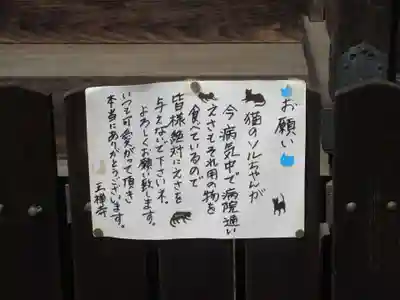 お願い
猫のソルちゃんが
今病気中で病院通い
えさもそれ用の物を
食べているので
皆様絶対にえさを
与えないで下さいネ。
よろしくお願い致します。
いつも可愛がって頂き
本当にありがとうございます。
王禅寺